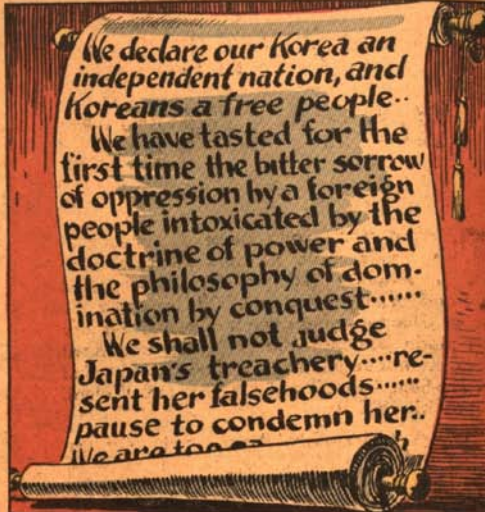 We declare our Korea an
independent nation, and
Koreans a free people..
We have tasted for the
first time the bitter sorrow
of oppression by a foreign
people intoxicated by the
doctrine of power and
the philosophy of dom-
ination by conquest......
We shall not judge
Japan's treachery....re-
sent her falsehoods.....
pause to condemn her..
We are too